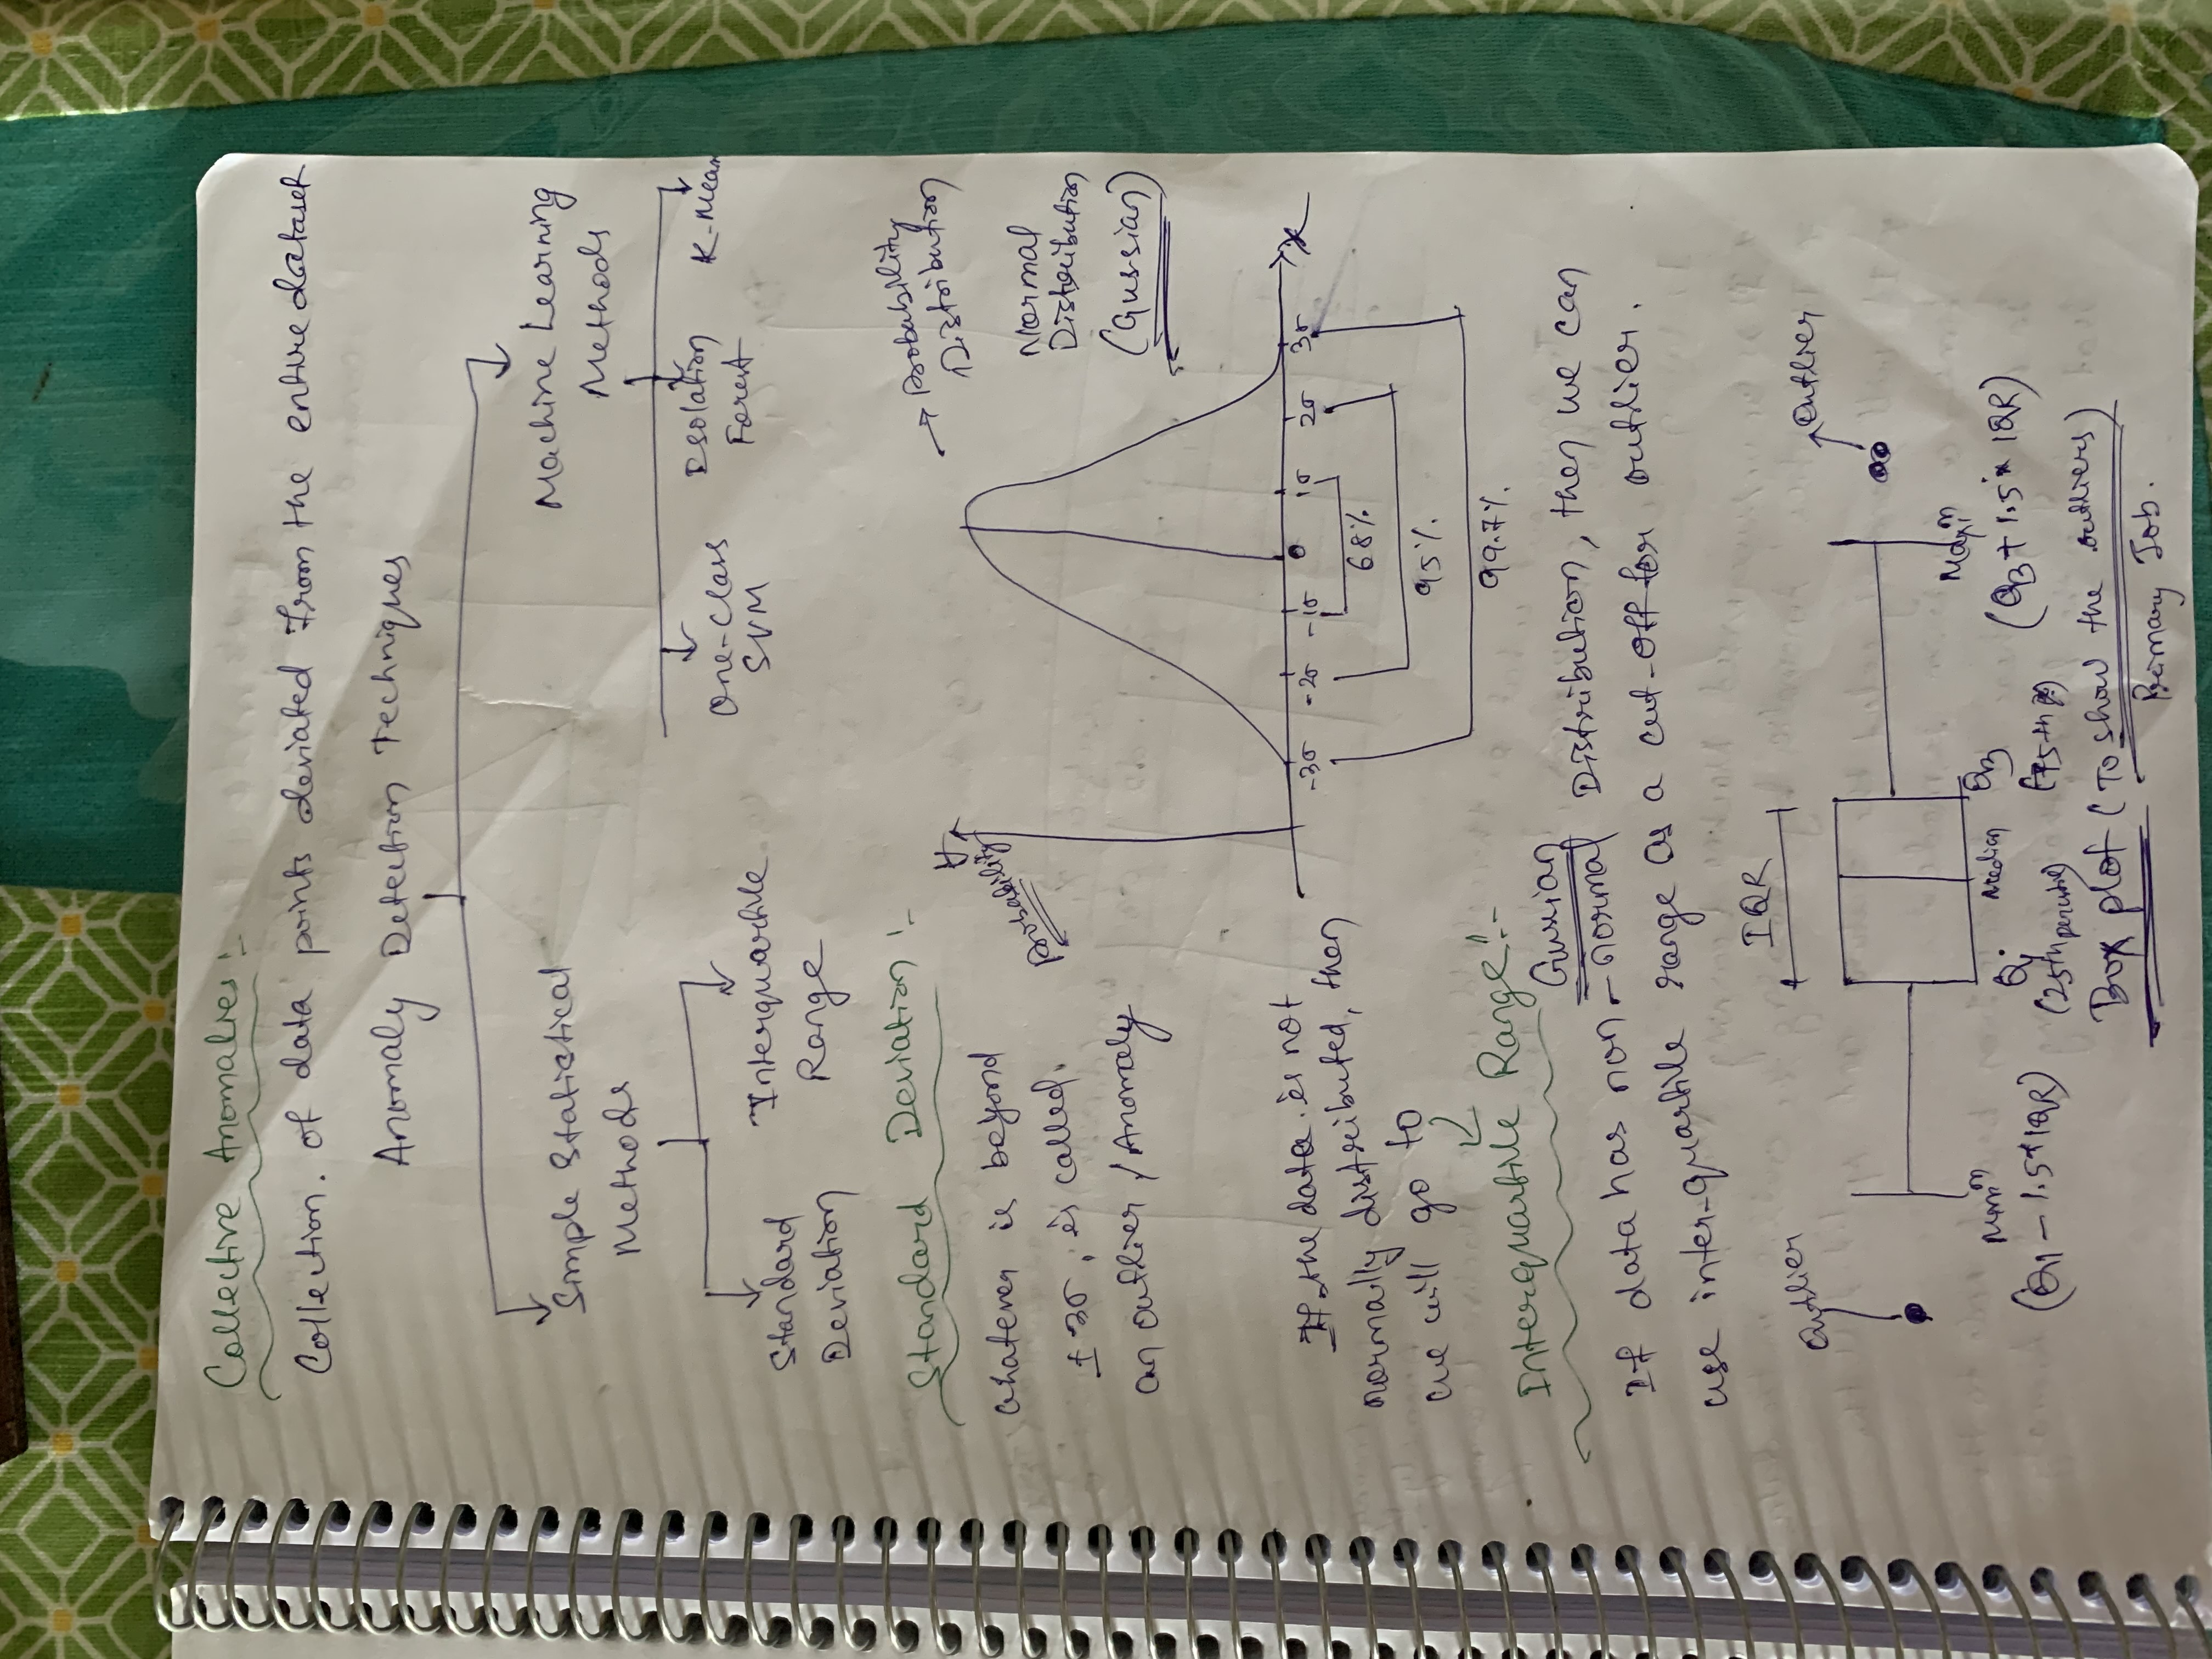 Collective Anomalies :-
Collection. of data points deviated from the entire dataset
Anomaly Detection Techniques
Simple Statistical
Methods
Machine Learning
Methods
Standard
Deviation
Interquartile
Range
One-Class
SVM
Isolation
Forest
K-Mean
Standard Deviation :-
Whatever is beyond
± 3σ, is called.
an outlier / Anomaly
y
Probability
→ Probability
Distribution
Normal
Distribution
(Gussian)
-3σ -2σ -1σ 0 1σ 2σ 3σ x
68%.
95%.
99.7%.
If the data is not
normally distributed, then
we will go to
Interquartile Range :-
Gussian
If data has non-normal Distribution, then we can
use inter-quartile range as a cut-off for outlier.
IQR
Outlier
Outlier
Minim
(Q1 - 1.5*IQR)
Q1
(25th percentile)
Median
Q3
(75th
Maxim
(Q3 + 1.5* IQR)
Box plot (To show the outliers)
Primary Job.